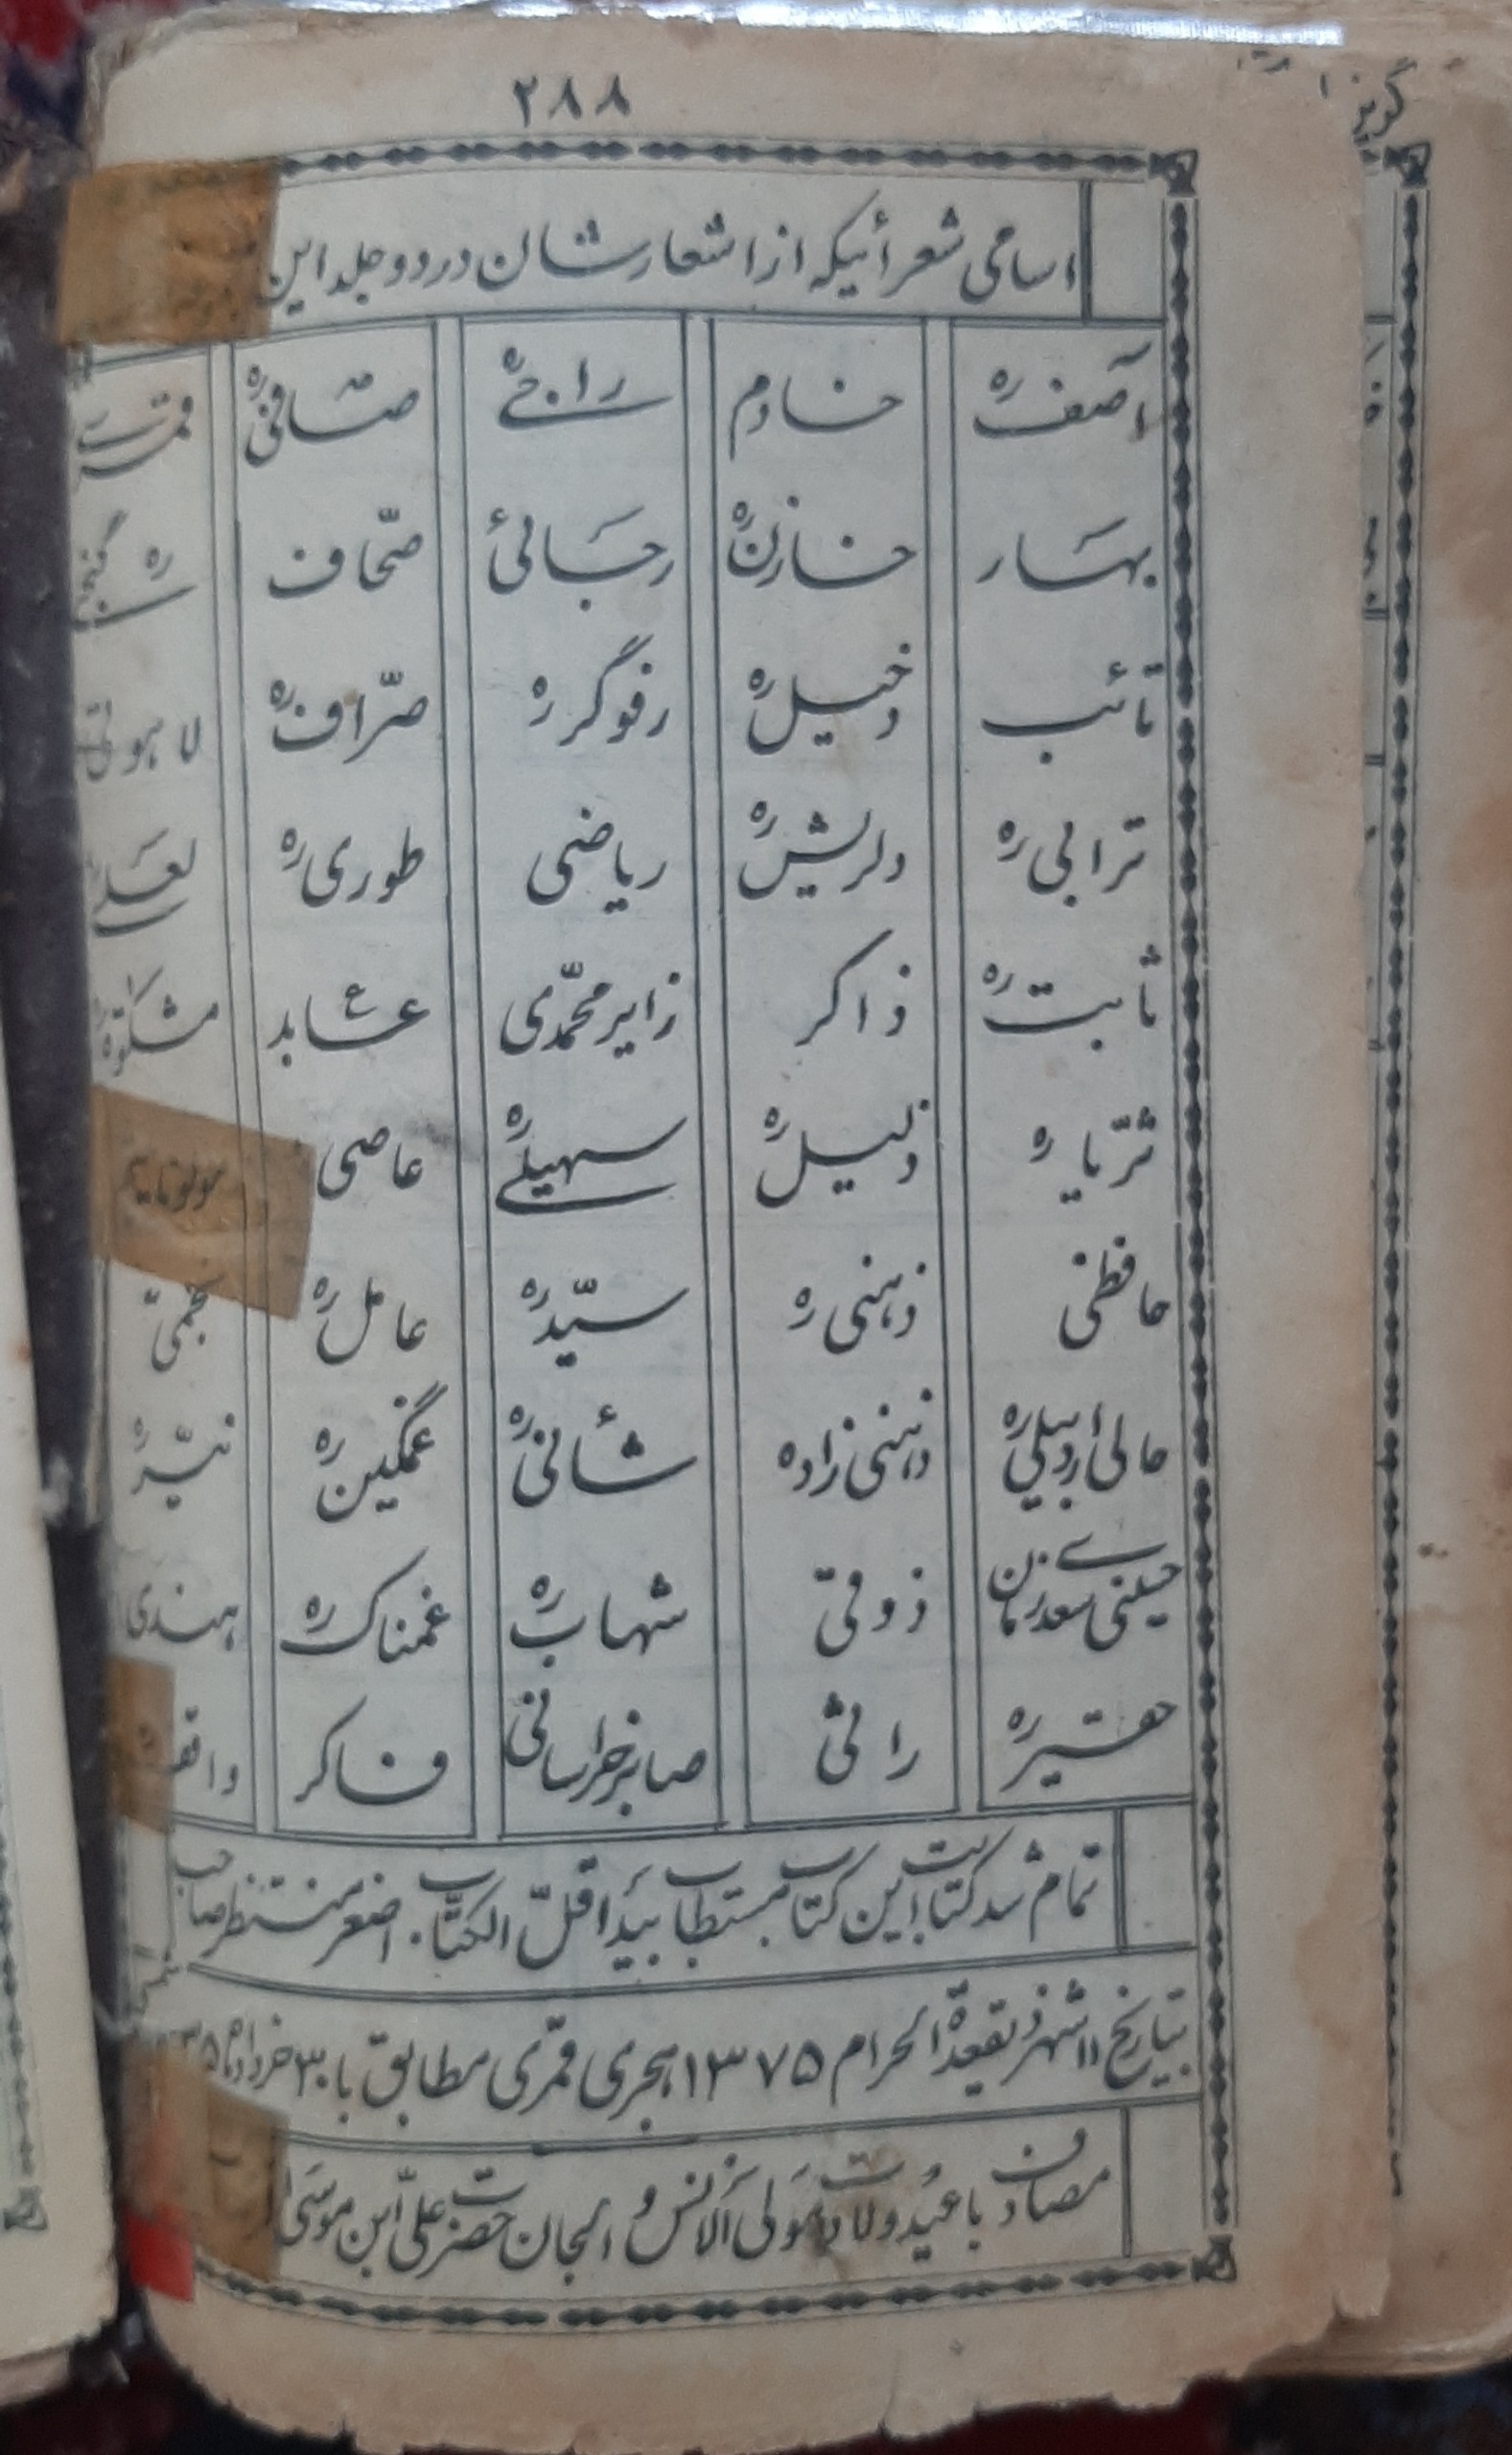 ۲۸۸
اسامی شعرأئیکه از اشعارشان در دو جلد این
آصف ره خادم راجی صافی ره
بهار خازن ره رجائی صحّاف
تائب دخیل ره رفوگر ره صرّاف ره لاهوتی
ترابی ره دلریش ره ریاضی طوری ره لعلی
ثابت ره ذاکر زایر محمّدی عابد مشکوة
ثرّیا ره ذلیل ره سهیلی ره عاصی
حافظی ذهنی ره سیّد ره عامل ره
عالی اردبیلی ره ذهنی زاده شائی ره غمگین ره نیّر ره
حسینی سعدی زمان ذوقی شهاب ره غمناک ره هندی
حقیر ره راثی صابر خراسانی فاکر واقف
تمام شد کتابت این کتاب مستطاب بید اقلّ الکتّاب اصغر منتظر صاحب
بتاریخ ۱۱ شهر ذیقعدة الحرام ۱۳۷۵ هجری قمّری مطابق با ۳۰ خرداد ماه
مصادف با عید ولادت مولی الانس و الجان حضرت علیّ ابن موسی